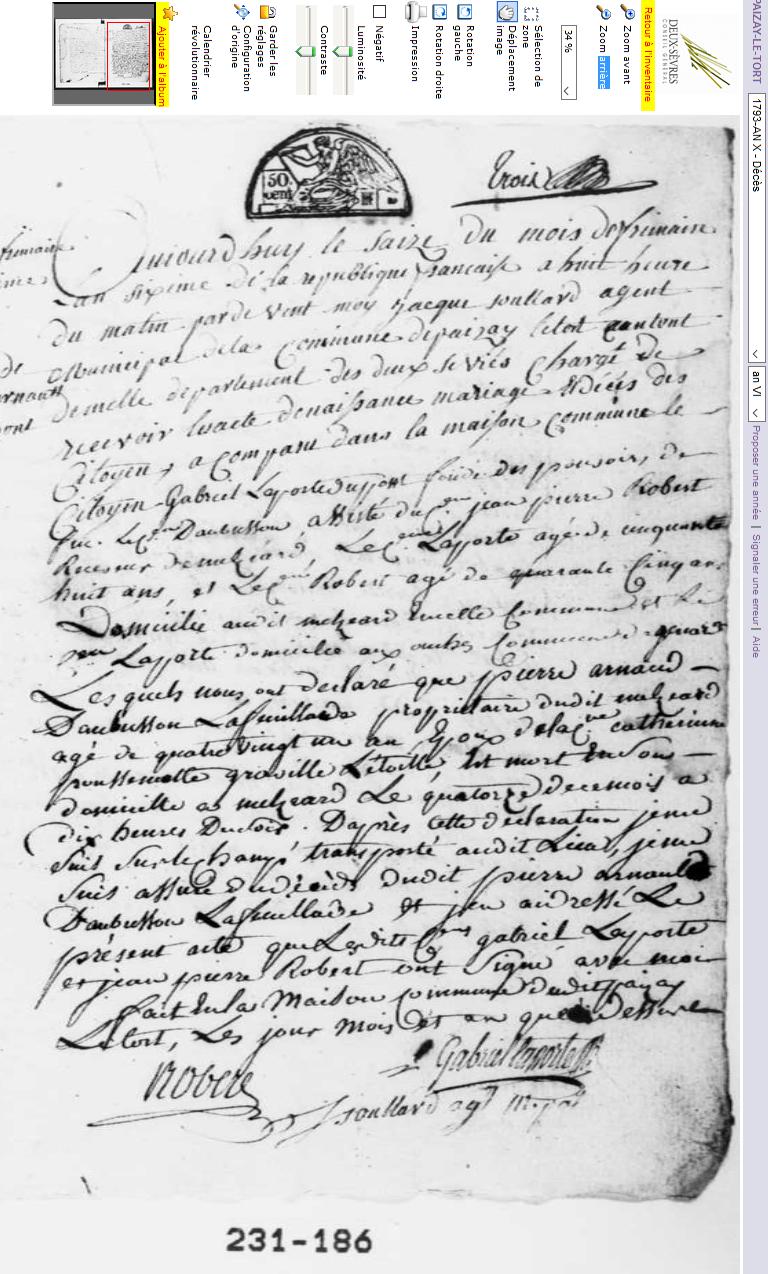 PAIZAY-LE-TORT
1793-AN X - Décès
an VI
Proposer une année | Signaler une erreur | Aide
DEUX-SÈVRES
CONSEIL GÉNÉRAL
Retour à l'inventaire
Zoom avant
Zoom arrière
34 %
Sélection de zone
Déplacement image
Rotation gauche
Rotation droite
Impression
Négatif
Luminosité
Contraste
Garder les réglages
Configuration d'origine
Calendrier révolutionnaire
Ajouter à l'album
50 cent
trois
Aujourdhuy le saize du mois de frimaire
lan sixieme de la republique francaise a huit heure
du matin par de vent moy jacque soullard agent
Municipal de la Commune depaizay letort cantont
demelle departement des deux se vres Chargé de
recevoir lesacte denaissance mariage Et décès des
Citoyens, a comparu dans la maison commune le
Citoyen Gabriel Laporte fondé des pouvoirs de
Daubusson assisté du jean pierre Robert
Le Laporte agé de cinquante
huit ans, et Le Robert agé de quarante Cinq ans
Domicilié audit melzeard Commune et Le
Laporte domicilié aux Commune de
Les quels nous ont declaré que pierre arnaud
Daubusson Lafeuillade propriétaire dudit melzeard
agé de quatre vingt un an Epoux de la catherinne
poussemotte graville Létoille Est mort En son
domicille a melzeard Le quatorze de ce mois a
dix heures Du soir. Daprès cette déclaration je me
suis sur le champs transporté audit Lieu, je me
suis assuré du décéds dudit pierre arnault
Daubusson Lafeuillade Et j'en ai dressé Le
présent acte que Les dits gabriel Laporte
et jean pierre Robert ont Signé avec moi
fait En la Maison commune dudit paizay
Letort, Les jour mois Et an que dessus
Gabriel Laporte
Robert
Jsoullard agt mpal
231-186